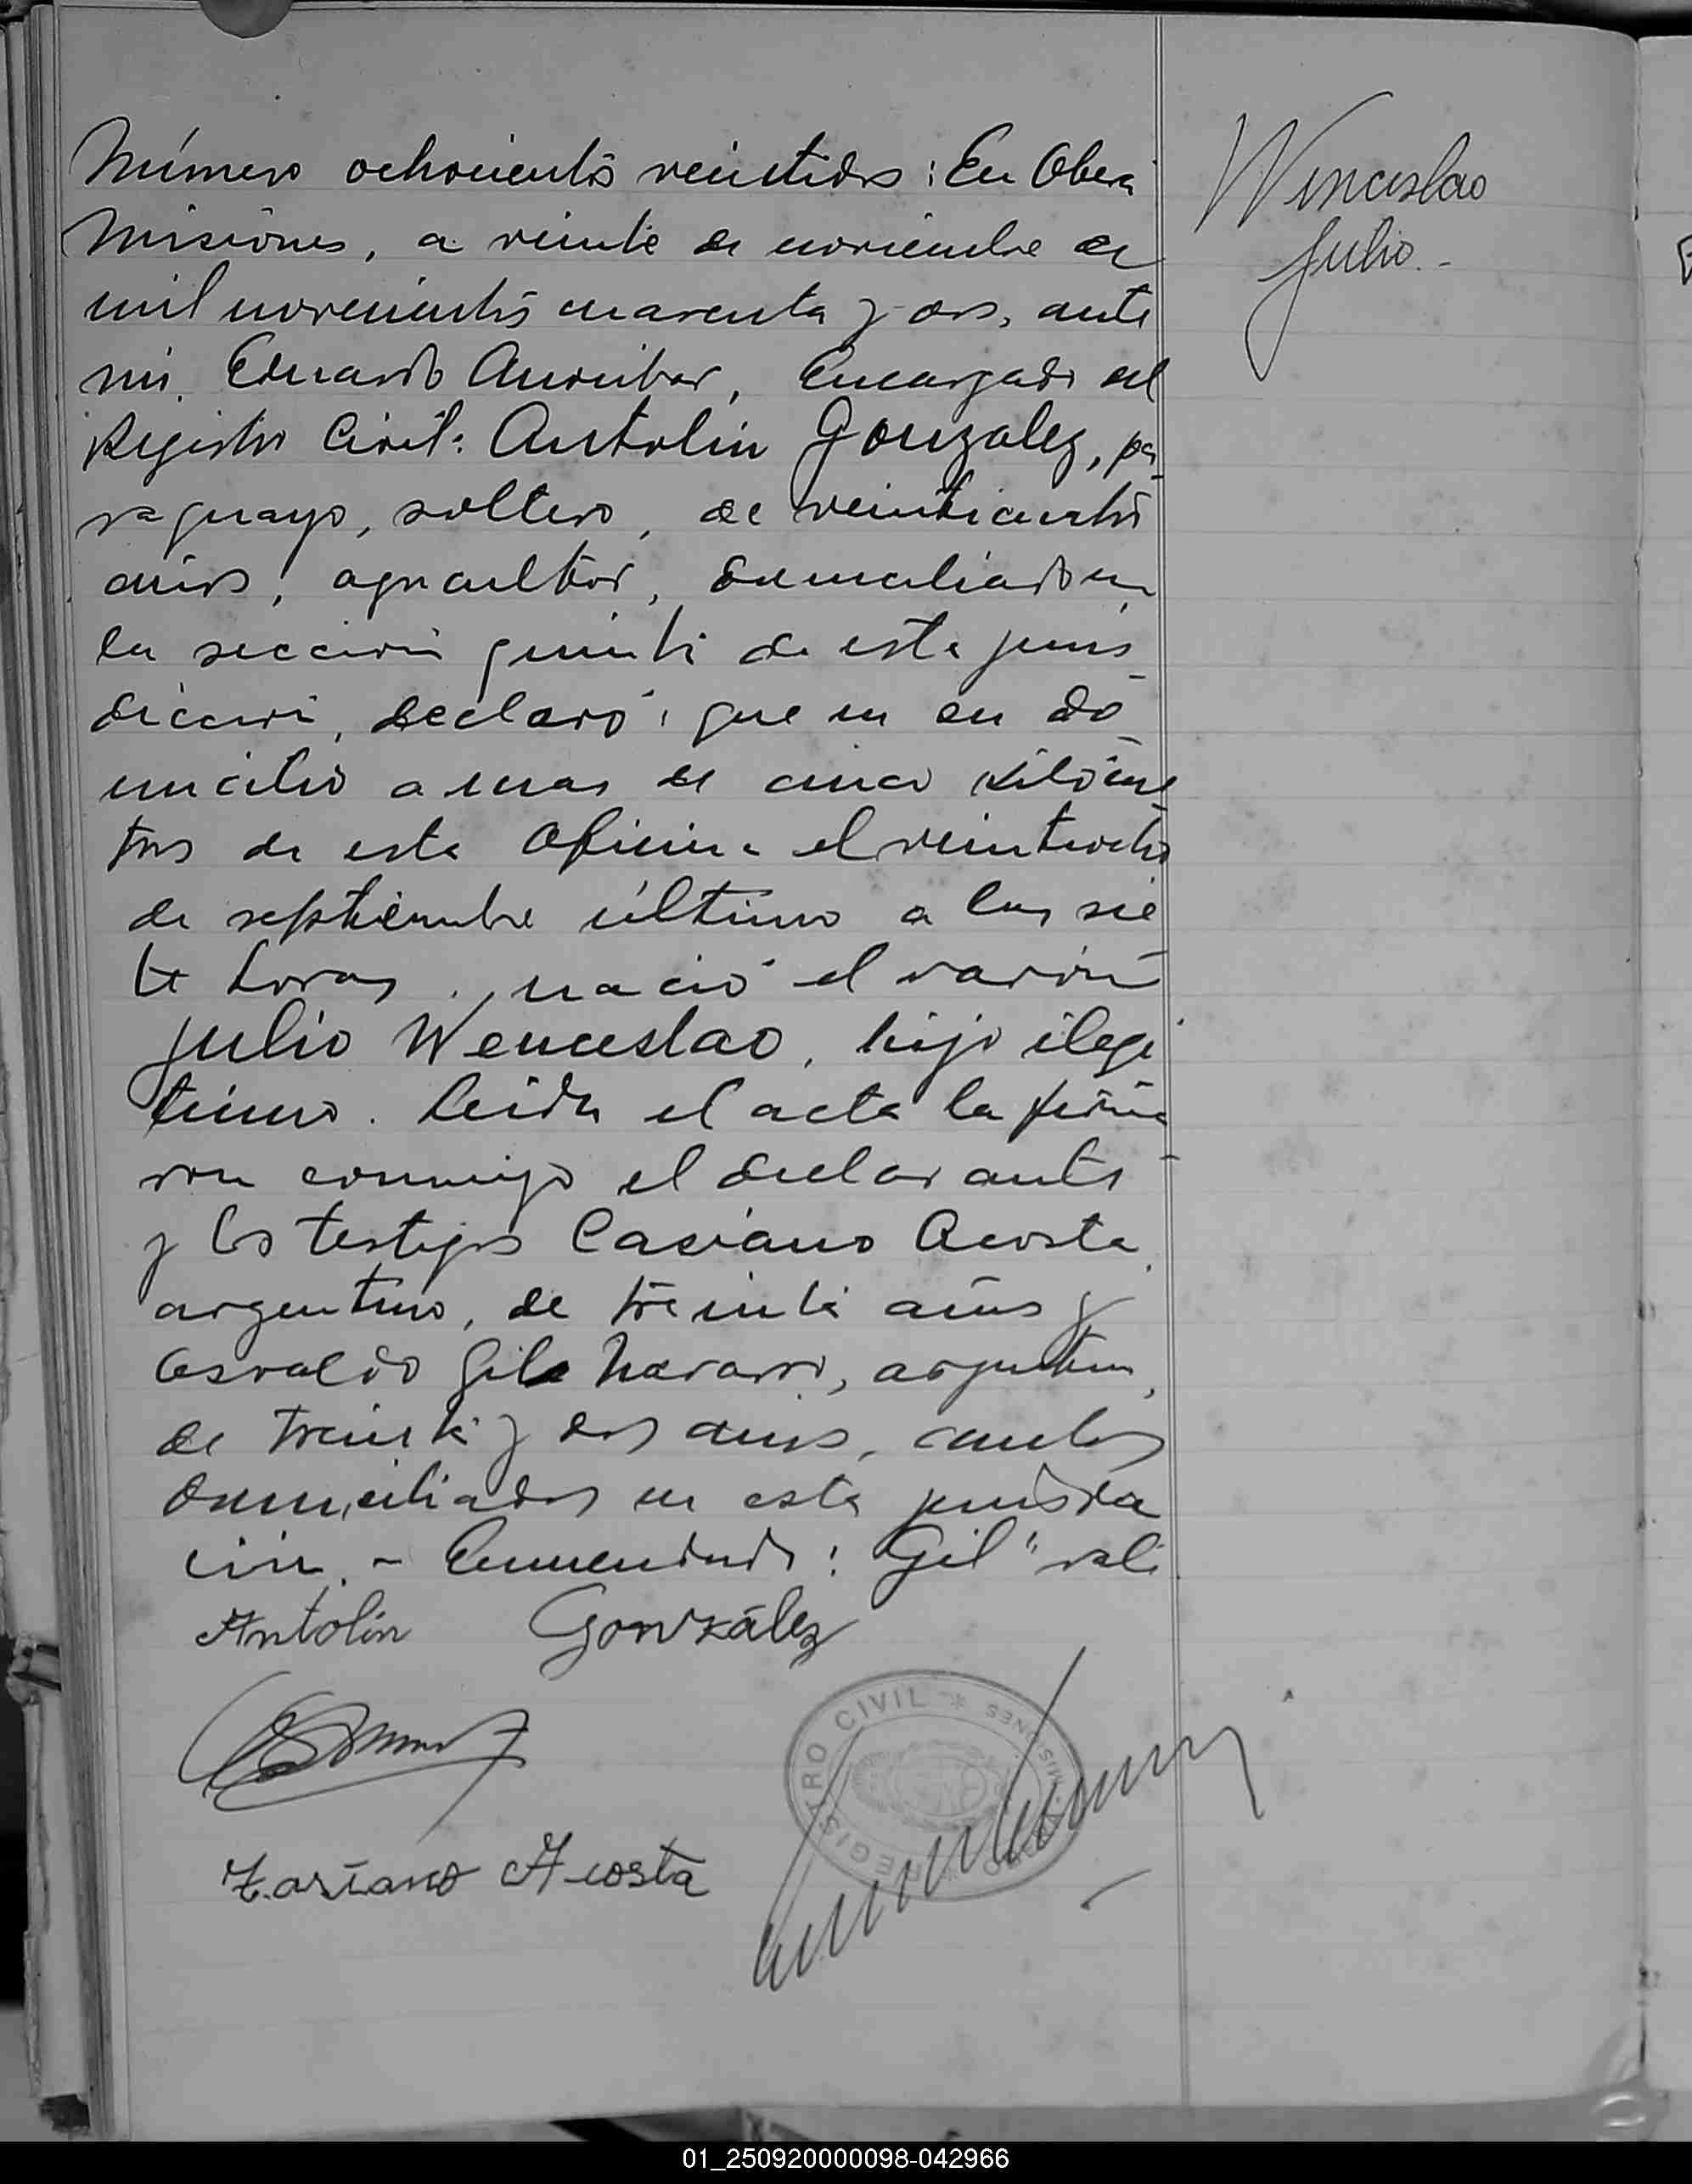 Número ochocientos veintidos: En Oberá
Misiones, a veinte de noviembre de
mil novecientos cuarenta y dos, ante
mi, Eduardo, Encargado del
Registro Civil: Antolín Gonzalez, pa-
raguayo, soltero, de veinticuatro
años, agricultor, domiciliado en
la sección quinta de esta juris-
dicción, declaró: que en su do-
micilio a mas de cinco kilóme-
tros de esta Oficina el veintiocho
de septiembre último a las sie
te horas, nació el varón
Julio Wenceslao, hijo ilegi
timo. Leida el acta la firma-
ron conmigo el declarante
y los testigos Casiano Acosta
argentino, de treinta años y
Osvaldo Gil Navarro, argentino,
de treinta y dos años, ambos
domiciliados en esta jurisdic
ción. - Enmendado: "Gil" vale
Antolín González
Casiano Acosta
REGISTRO CIVIL * MISIONES
Wenceslao
Julio.-
01_250920000098-042966